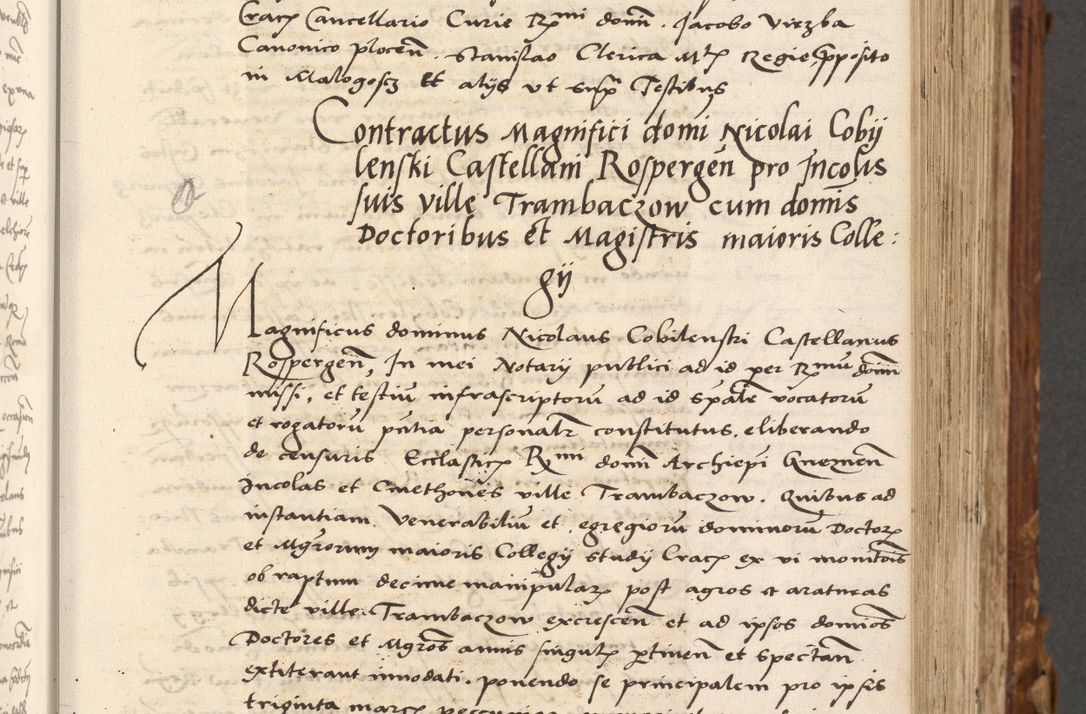 Crac Cancellario Curie Rmi domi. Jacobo Viezba
Canonico plocen. Stanislao Clerica Mtis Regie pposito
in Malogoscz Et alijs ut supra Testibus
Contractus Magnifici domi Nicolai Cobij
lenski Castellani Rospergen pro Incolis
suis ville Trambaczow cum domis
Doctoribus et Magistris maioris Colle:
gij
Magnificus dominus Nicolaus Cobilenski Castellanus
Rospergen, In mei Notarij publici ad id per Rmu domi
missi, et testiu infrascriptoru ad id spale vocatoru
et rogatoru pntia personalr constitutus, eliberando
de censuris Ecclastic Rmi domi Archiepi Gneznen
Incolas et Cmethones ville Trambaczow. Quibus ad
instantiam Venerabiliu et egregioru dominoru Doctor
et Mgrorum maioris Collegij studij Crac ex vi monitois
ob raptum decime manipular post agros et araturas
dicte ville Trambaczow excrescen et ad ipsos domios
Doctores et Mgros annis singulis ptinen et spectan
extiterant innodati. ponendo se principalem pro ipsis
triginta marc